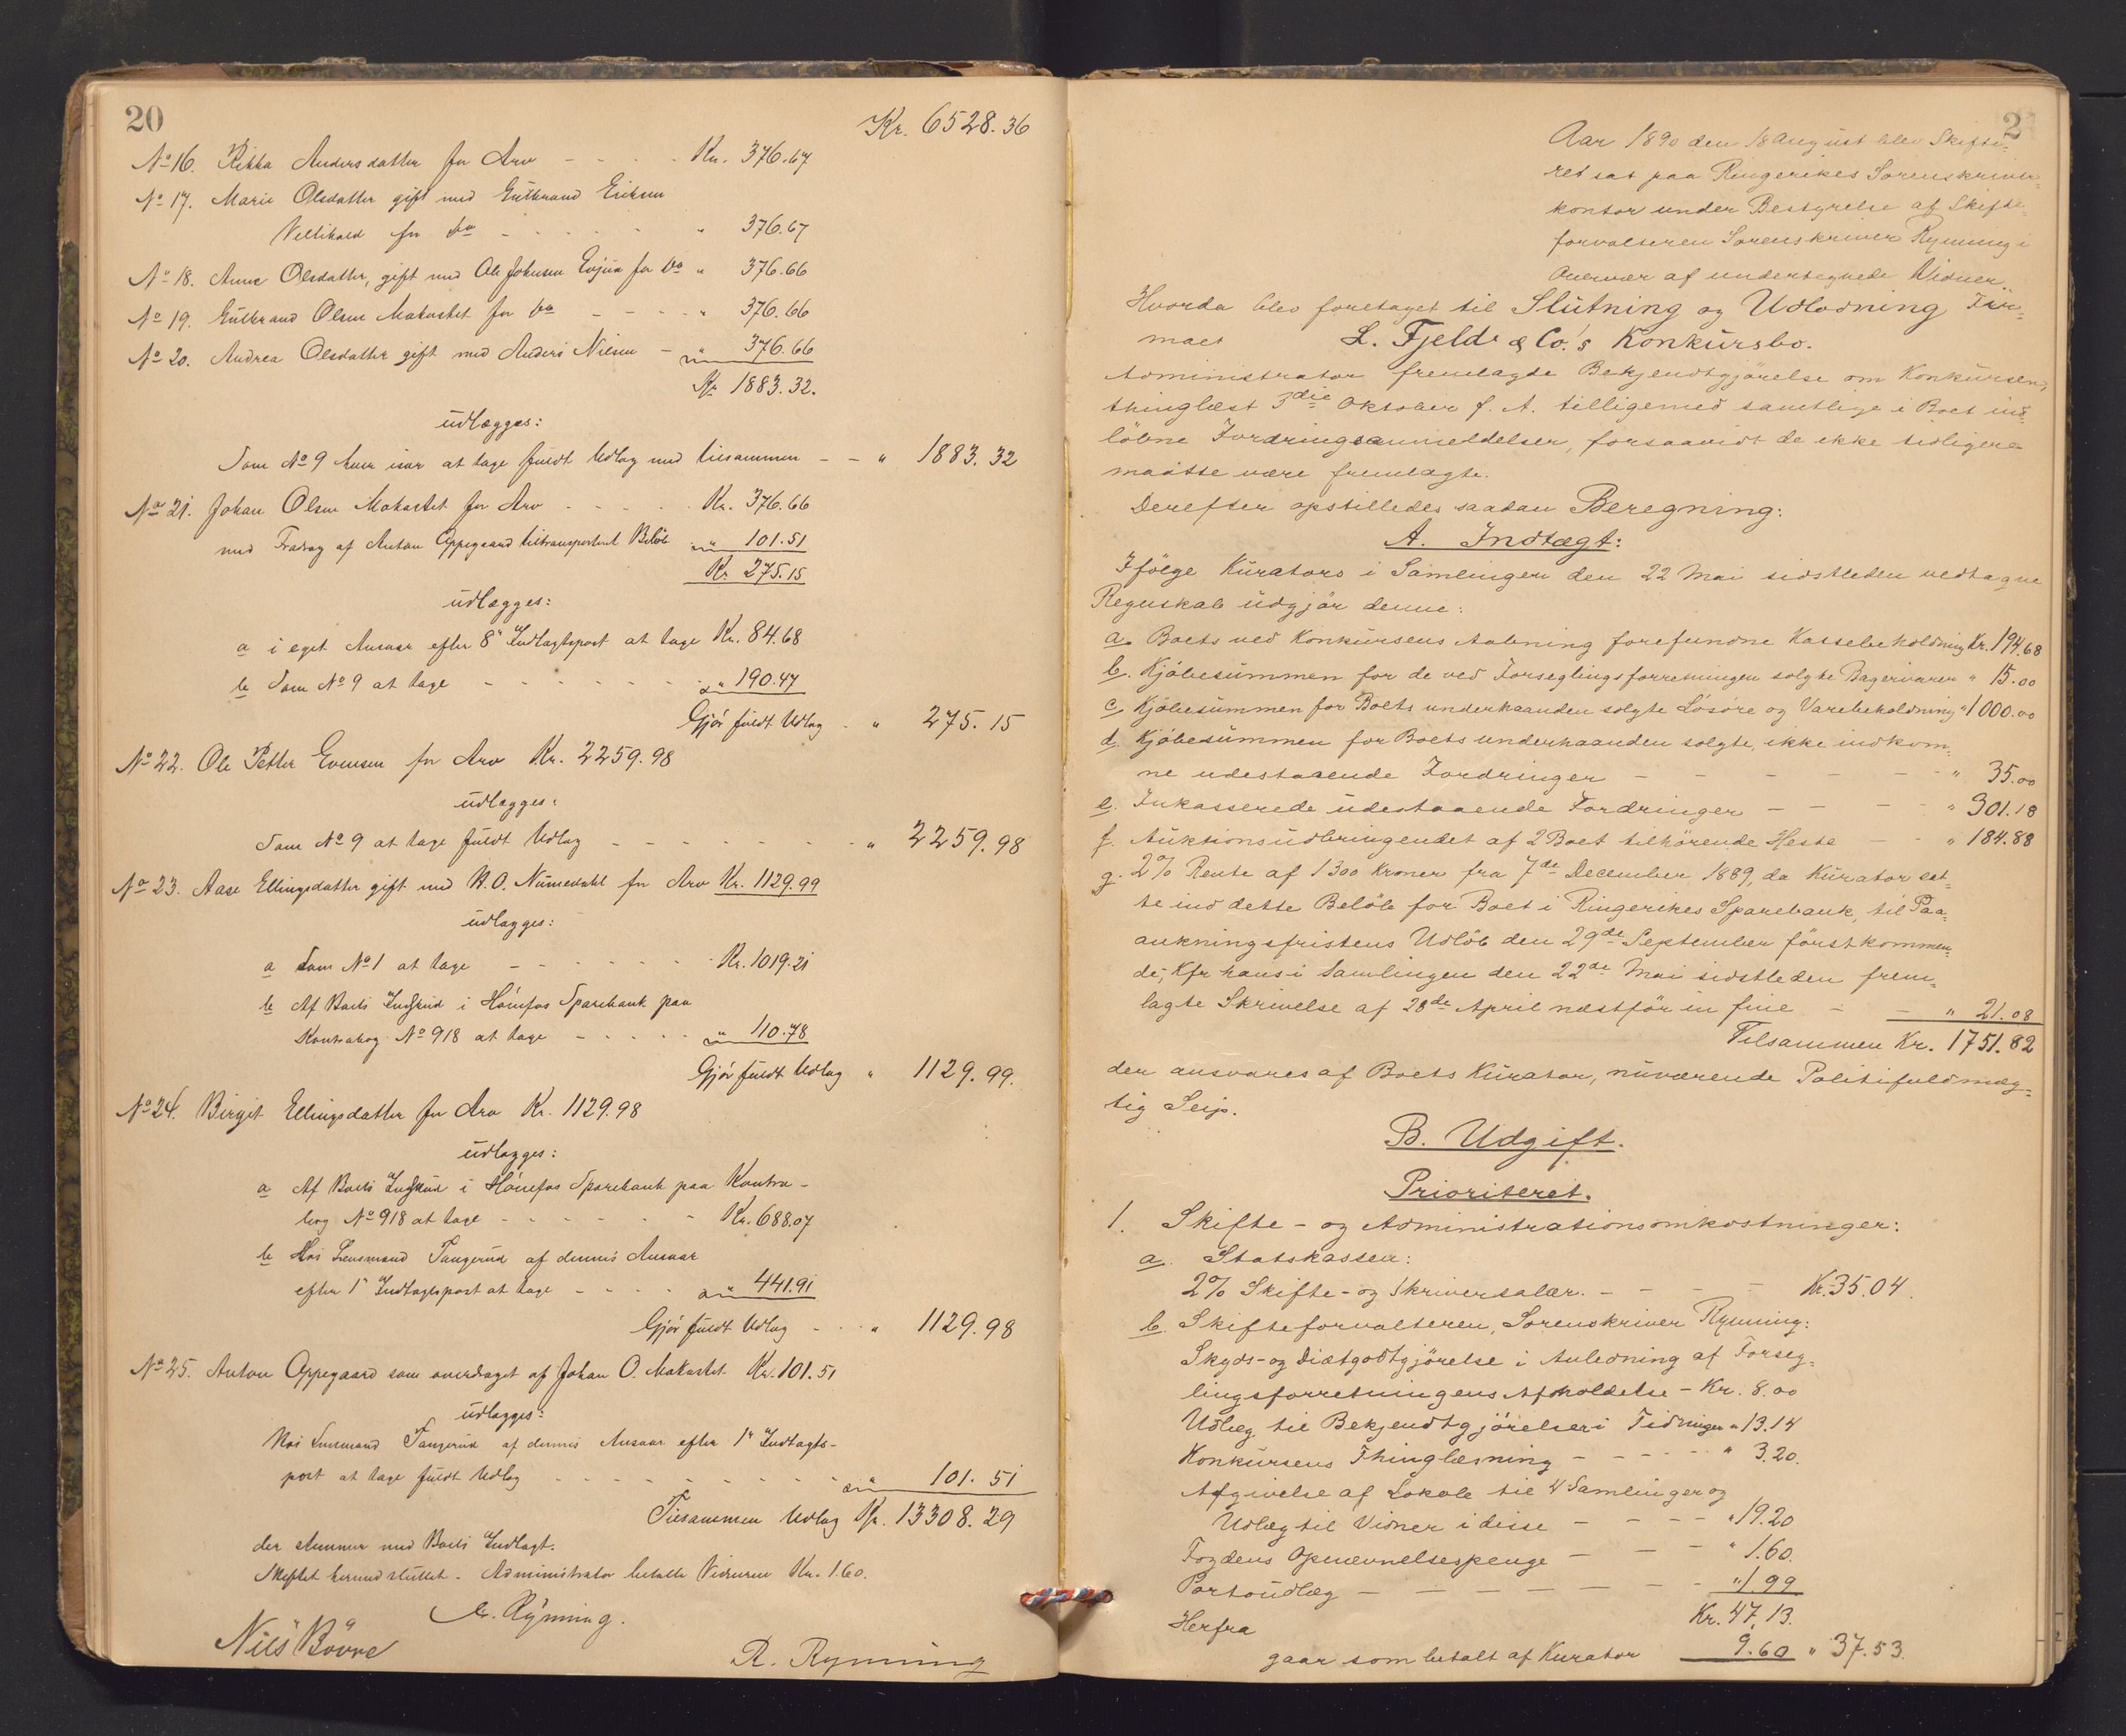 20
Kr. 6528.36
No 16. Kitha Andersdatter for Arv - - - - Kr. 376.67
No 17. Marie Olsdatter gift med Gulbrand Eriksen
for do - - - - - " 376.67
No 18. Anne Olsdatter, gift med Ole Johnsen for do " 376.66
No 19. Gulbrand Olsen Mokastet for do - - - - " 376.66
No 20. Andrea Olsdatter gift med Anders Nilsen - " 376.66
Kr 1883.32.
udlægges:
Som No 9 hver især at tage fuldt Udlæg med tilsammen - - " 1883.32
No 21. Johan Olsen Mokastet for Arv - - - - Kr. 376.66
med Fradrag af Anton Oppegaard tiltransporteret Beløb " 101.51
Kr 275.15
udlægges:
a i eget Ansvar efter 8de Indtægtspost at tage Kr. 84.68
b Som No 9 at tage - - - - - - " 190.47
Gjør fuldt Udlæg - " 275.15
No 22. Ole Petter Evensen for Arv Kr. 2259.98
udlægges:
Som No 9 at tage fuldt Udlæg - - - - - - " 2259.98
No 23. Aase Ellingsdatter gift med N. O. Numedahl for Arv Kr. 1129.99
udlægges:
a Som No 1 at tage - - - - - - Kr. 1019.21
b Af Boets Indskud i Hønefos Sparebank paa
Kontrabog No 918 at tage - - - - - " 110.78
Gjør fuldt Udlæg " 1129.99.
No 24. Birgit Ellingsdatter for Arv Kr. 1129.98
udlægges:
a Af Boets Indskud i Hønefos Sparebank paa Kontra-
bog No 918 at tage - - - - - - Kr. 688.07
b Hos Lensmand Tangerud af dennes Ansvar
efter 1ste Indtægtspost at tage - - - - " 441.91
Gjør fuldt Udlæg - - - " 1129.98
No 25. Anton Oppegaard som overdraget af Johan O. Mokastet Kr. 101.51
udlægges:
Hos Lensmand Tangerud af dennes Ansvar efter 1ste Indtægts-
post at tage fuldt Udlæg - - - - - - - - - " 101.51
Tilsammen Udlæg Kr. 13308.29
der stemmer med Boets Indtægt.
Skiftet hermed sluttet. - Administrator betalte Vidnerne Kr. 1.60.
E. Rynning.
Nils Bövre
R. Rynning
2
Aar 1890 den 18 August blev Skifte-
ret sat paa Ringerikes Sorenskriver-
kontor under Bestyrelse af Skifte-
forvalteren Sorenskriver Rynning i
Overvær af undertegnede Vidner.
Hvorda blev foretaget til Slutning og Udlodning Fir-
maet L. Fjeld & Co.'s Konkursbo.
Administrator fremlagde Bekjendtgjörelse om Konkursen,
thinglæst 3die Oktober f. A. tilligemed samtlige i Boet ind-
löbne Fordringsanmeldelser, forsaavidt de ikke tidligere
maatte være fremlagte.
Derefter opstilledes saadan Beregning:
A. Indtægt:
Ifölge Kurators i Samlingen den 22 Mai sidstleden vedtagne
Regnskab udgjör denne:
a. Boets ved Konkursens Aabning forefundne Kassebeholdning Kr. 194.68
b. Kjöbesummen for de ved Forseglingsforretningen solgte Bagervarer " 15.00
c. Kjöbesummen for Boets underhaanden solgte Lösöre og Varebeholdning " 1000.00
d. Kjöbesummen for Boets underhaanden solgte, ikke indkom-
ne udestaaende Fordringer - - - - - - " 35.00
e. Inkasserede udestaaende Fordringer - - - - " 301.18
f. Auktionsudbringendet af 2 Boet tilhörende Heste - - " 184.88
g. 2% Rente af 1300 Kroner fra 7de December 1889, da Kurator sat-
te ind dette Belöb for Boet i Ringerikes Sparebank, til Paa-
ankningsfristens Udlöb den 29de September förstkommen-
de, Kfr hans i Samlingen den 22de Mai sidstleden frem-
lagte Skrivelse af 28de April næstför in fine - - " 21.08
Tilsammen Kr. 1751.82
der ansvares af Boets Kurator, nuværende Politifuldmæg-
tig Seip.
B. Udgift.
Prioriteret.
1. Skifte- og Administrationsomkostninger:
a. Statskassen:
2% Skifte- og Skriversalær. - - - - Kr. 35.04.
b. Skifteforvalteren, Sorenskriver Rynning:
Skyds- og Diætgodtgjörelse i Anledning af Forseg-
lingsforretningens Afholdelse - Kr. 8.00
Udlæg til Bekjendtgjörelser i Tidninger " 13.14
Konkursens Thinglæsning - - - - " 3.20.
Afgivelse af Lokale til 4 Samlinger og
Udlæg til Vidner i disse - - - - " 19.20
Fogdens Opnævnelsespenge - - - " 1.60.
Portoudlæg - - - - - - - " 1.99
Kr. 47.13.
Herfra
gaar som betalt af Kurator 9.60 " 37.53.